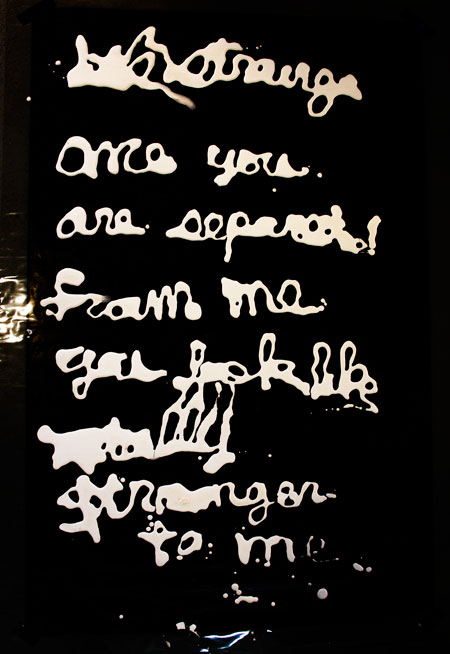 strange
once you
are separate!
from me
you look like
stranger
to me